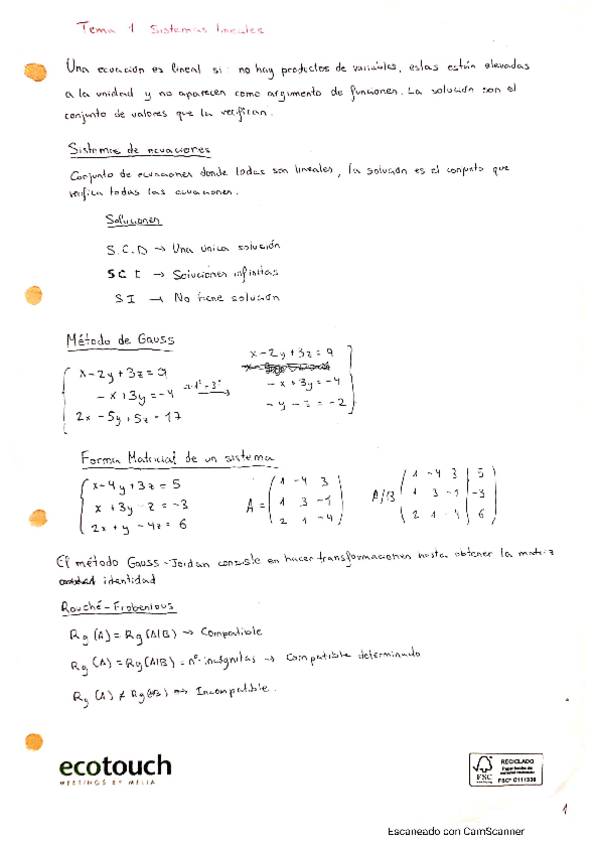 Tema 1 Sistemas lineales
Una ecuación es lineal si: no hay productos de variables, estas están elevadas
a la unidad y no aparecen como argumento de funciones. La solución son el
conjunto de valores que la verifican.
Sistemas de ecuaciones
Conjunto de ecuaciones donde todas son lineales, la solución es el conjunto que
verifica todas las ecuaciones.
Soluciones
S.C.D → Una única solución
SCI → Soluciones infinitas
SI → No tiene solución
Método de Gauss
x-2y+3z=9
-x+3y=-4
2x-5y+5z=17
x-2y+3z=9
-x+3y=-4
-y-z=-2
Forma Matricial de un sistema
x-4y+3z=5
x+3y-z=-3
2x+y-4z=6
A=
1 -4 3
1 3 -1
2 1 -4
A/B
1 -4 3 | 5
1 3 -1 | -3
2 1 -4 | 6
El método Gauss-Jordan consiste en hacer transformaciones hasta obtener la matriz
identidad
Rouché-Frobenious
Rg(A)=Rg(A|B) → Compatible
Rg(A)=Rg(A|B)=nº incógnitas → Compatible determinado
Rg(A)≠Rg(A|B) → Incompatible.
ecotouch
MEETINGS BY MELIA
FSC
RECICLADO
FSC® C111338
1
Escaneado con CamScanner